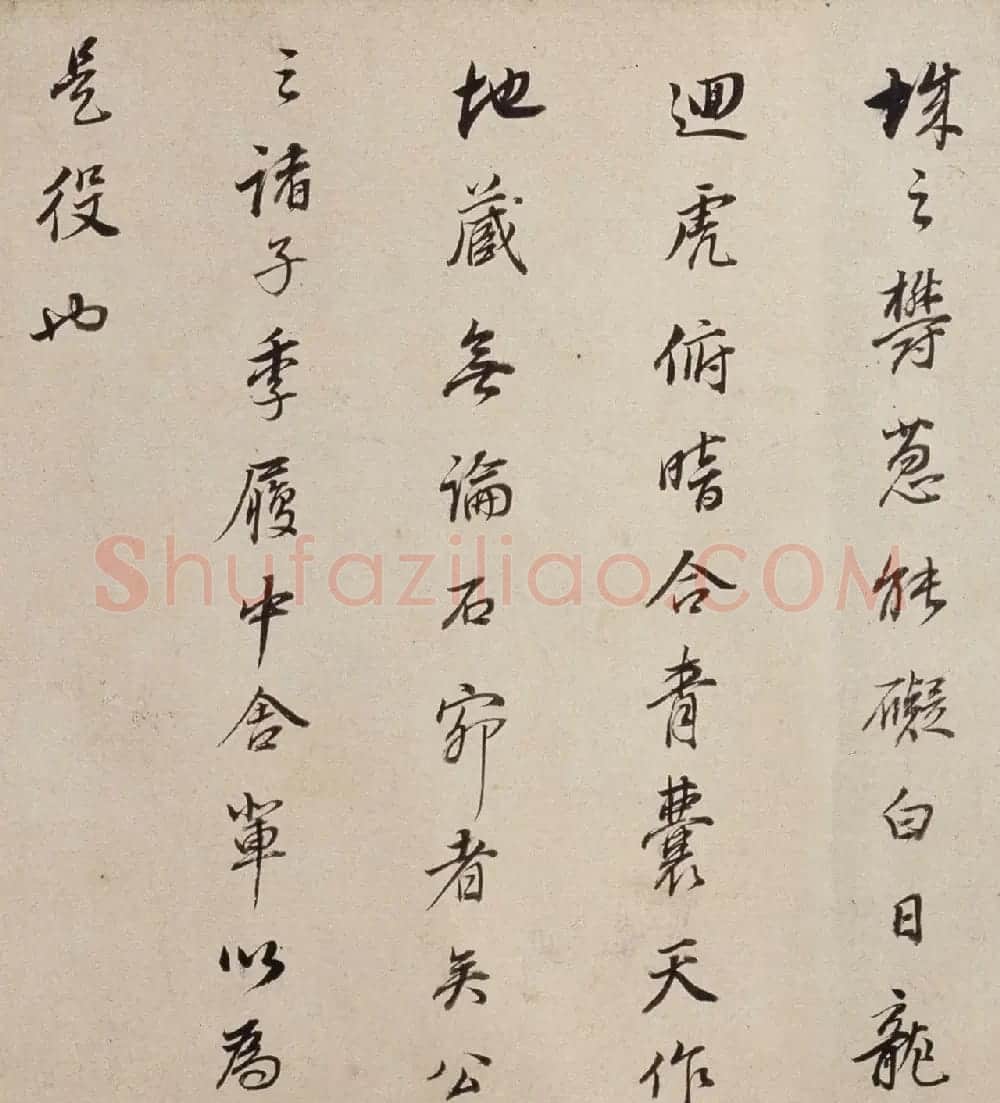 株之欝葱能礙白日龍
迴虎俯暗合青囊天作
地藏無論石窌者矣公
之諸子季履中舍軰以為
是役也
Shufaziliao.COM